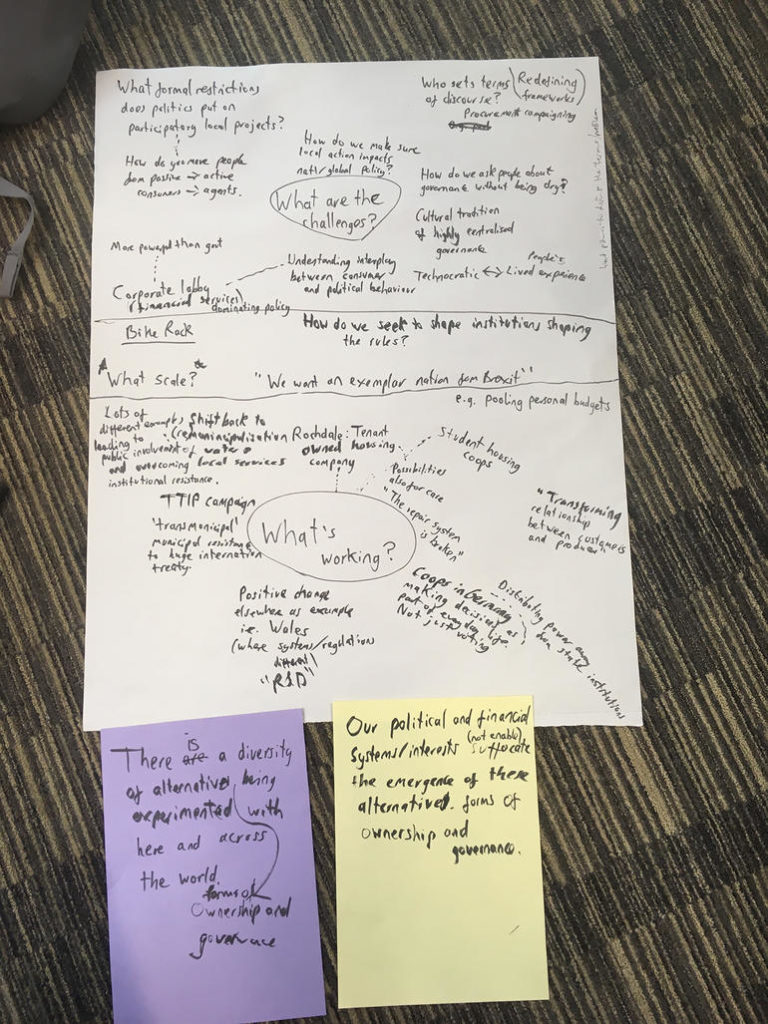 What formal restrictions
does politics put on
participatory local projects?
How do you move people
from passive → active
consumers → agents.
Who sets terms (Redefining
of discourse? frameworks)
Procurement campaigning
How do we make sure
local action impacts
natl/global policy?
How do we ask people about
governance without being dry?
What are the
challenges?
Cultural tradition
of highly centralised
governance
People's
Technocratic ↔ Lived experience
More powerful than govt
Understanding interplay
between consumer
and political behaviour
Corporate lobby
(financial services)
dominating policy
Bike Rack
How do we seek to shape institutions shaping
the rules?
* What scale? *
"We want an exemplar nation from Brexit"
e.g. pooling personal budgets
Lots of
different examples
leading to
public involvement
and overcoming
institutional resistance.
Shift back to
(remunicipalization
of water &
local services
Rochdale: Tenant
owned housing
company
Student housing
coops
Possibilities
also for care
"The repair system
is broken"
"Transforming
relationship
between customers
and producer"
TTIP campaign
'transmunicipal'
municipal resistance
to huge internation
treaty
What's
working?
Positive change
elsewhere as example
i.e. Wales
(where systems/regulations
different)
"R&D"
Coops in Germany
making decisions as
part of everyday life.
Not just voting
Distributing power away
from state institutions
There is a diversity
of alternative being
experimented with
here and across
the world.
forms of
Ownership and
governance
Our political and financial
systems/interests (not enable) suffocate
the emergence of these
alternative forms of
ownership and
governance.